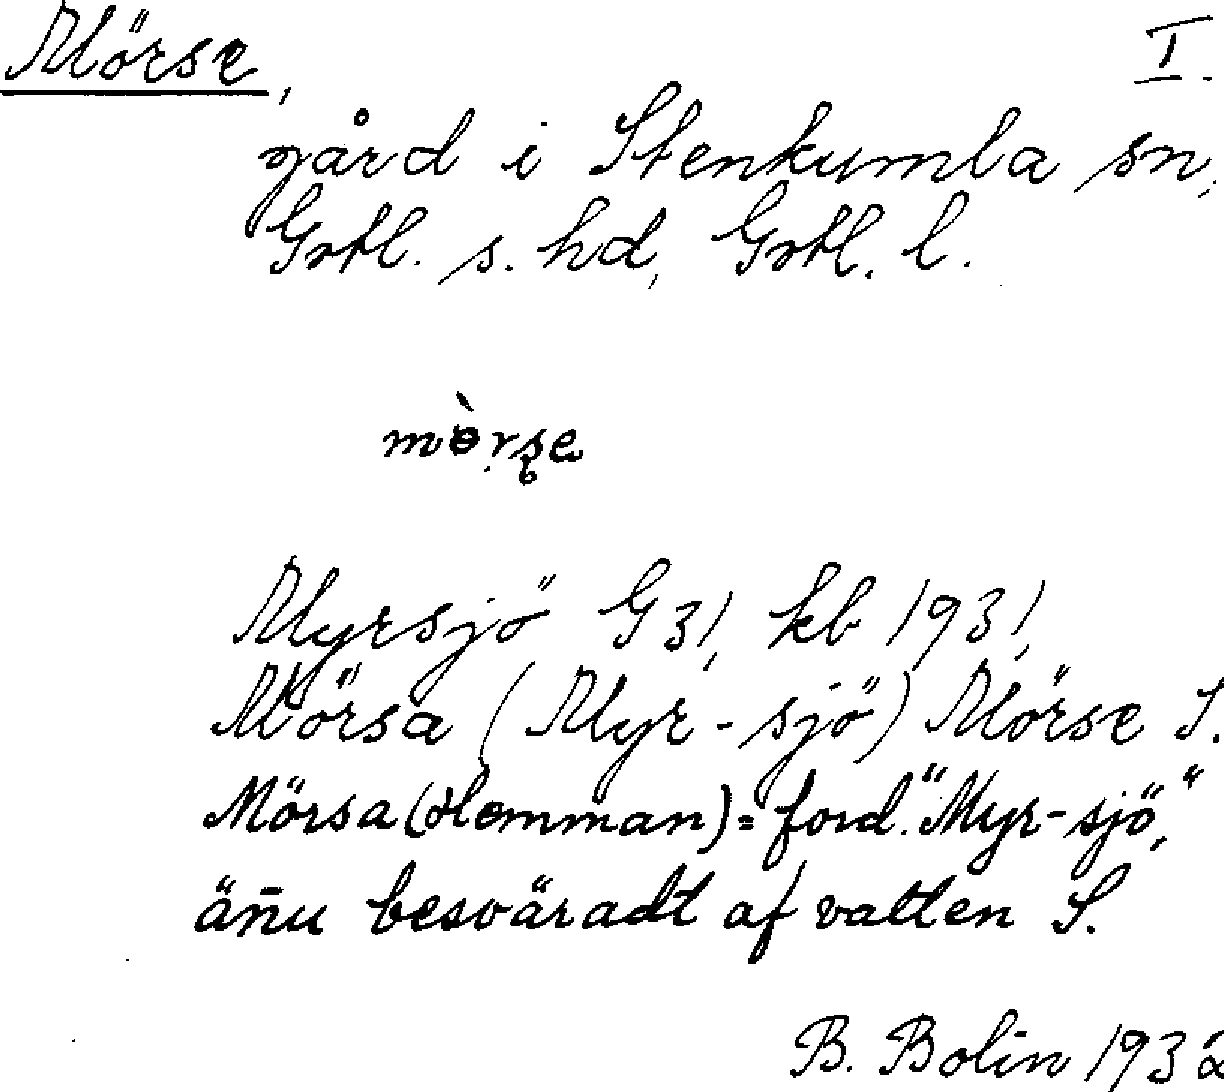 Mörse, I.
gård i Stenkumla sn,
Gotl. s. hd, Gotl. l.
mø̀rse
Myrsjö G31, kb 1931,
Mörsa (Myr-sjö) Mörse S.
Mörsa (Hemman) = ford. "Myr-sjö",
än̄u besväradt af vatten S.
B. Bolin 1932